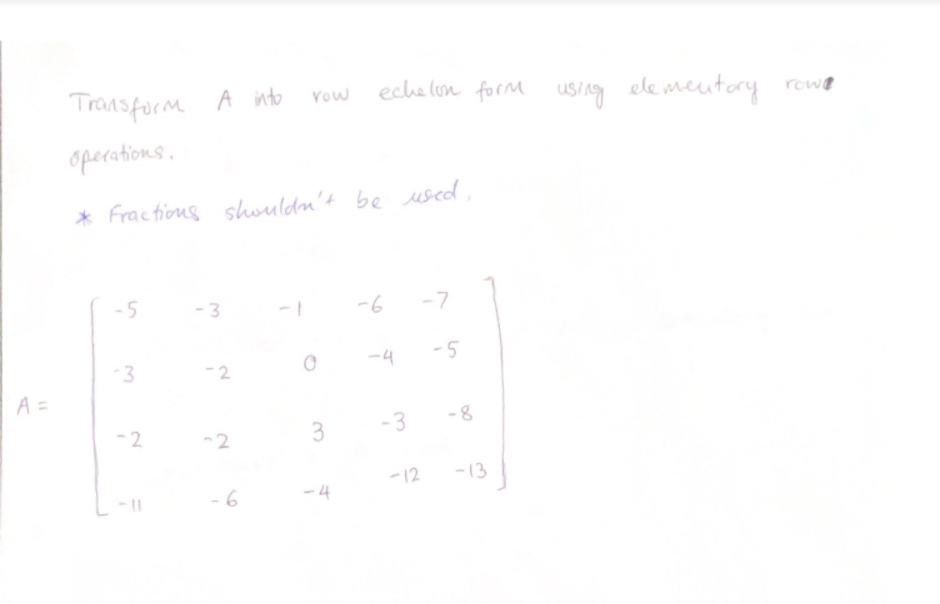 Transform A into row echelon form using elementary row
operations.
* Fractions shouldn't be used.
-5 -3 -1 -6 -7
-3 -2 0 -4 -5
A =
-2 -2 3 -3 -8
-11 -6 -4 -12 -13